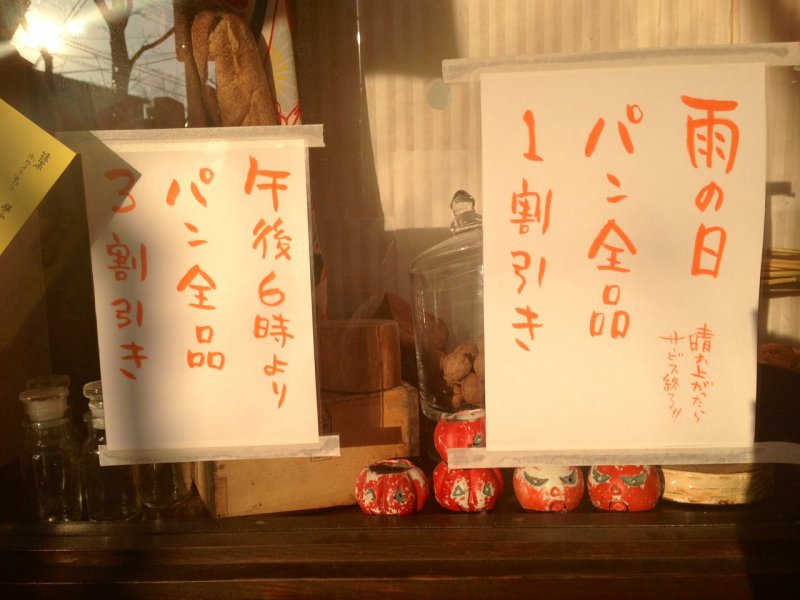 雨の日
パン全品
1割引き
晴れ上がったら
サービス終了!!
午後6時より
パン全品
3割引き